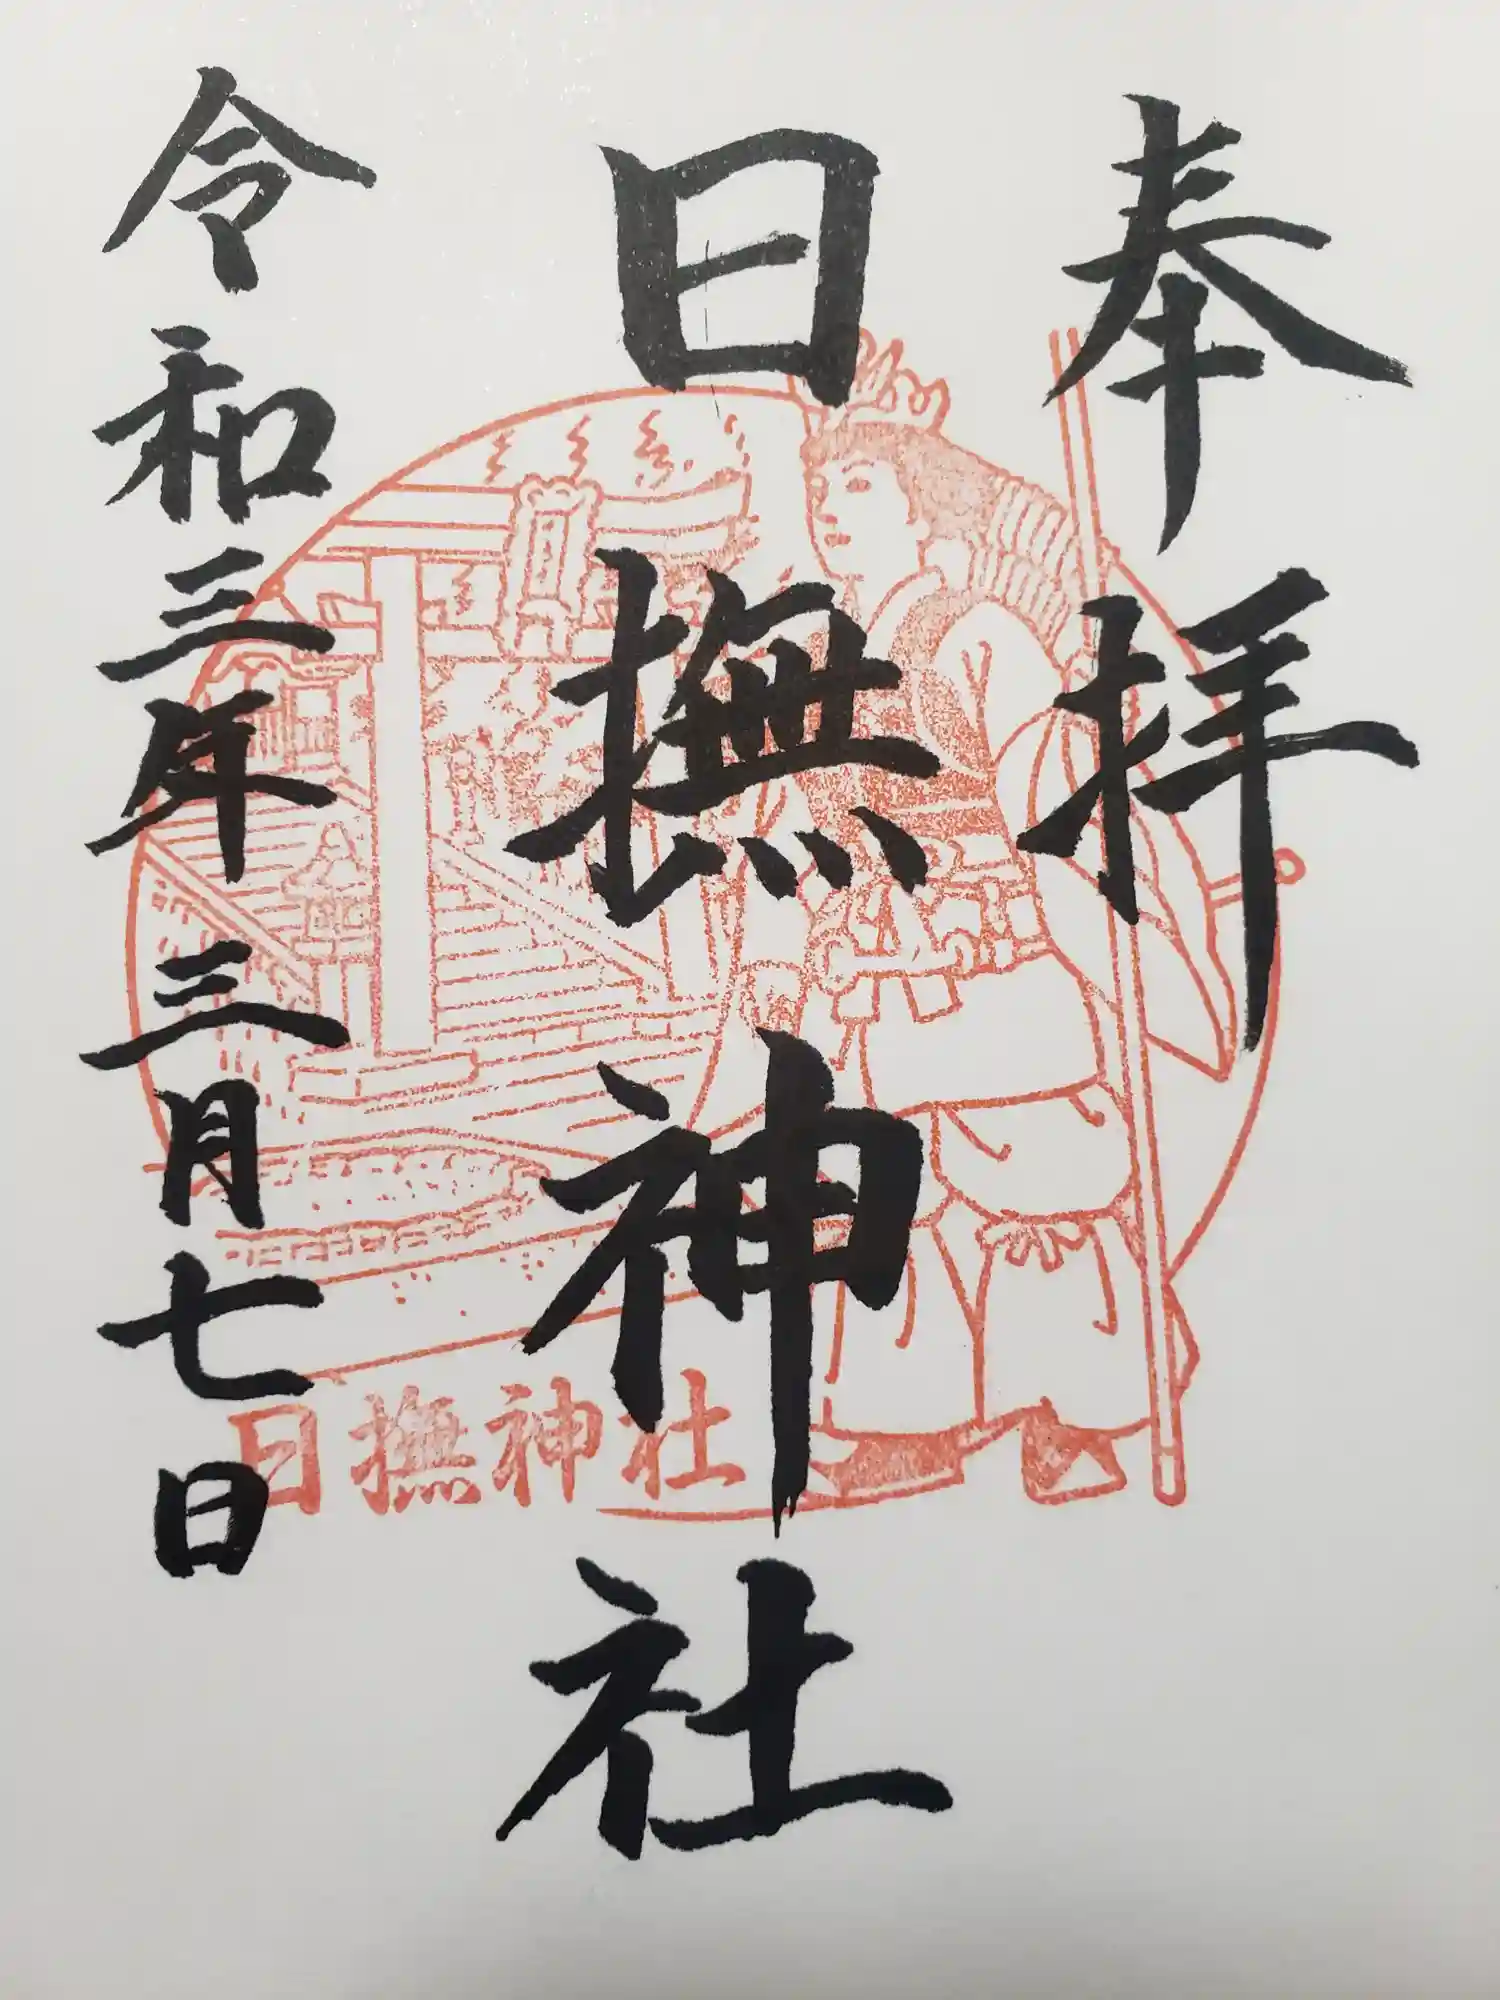 奉拝
日撫神社
令和三年三月七日
日撫神社